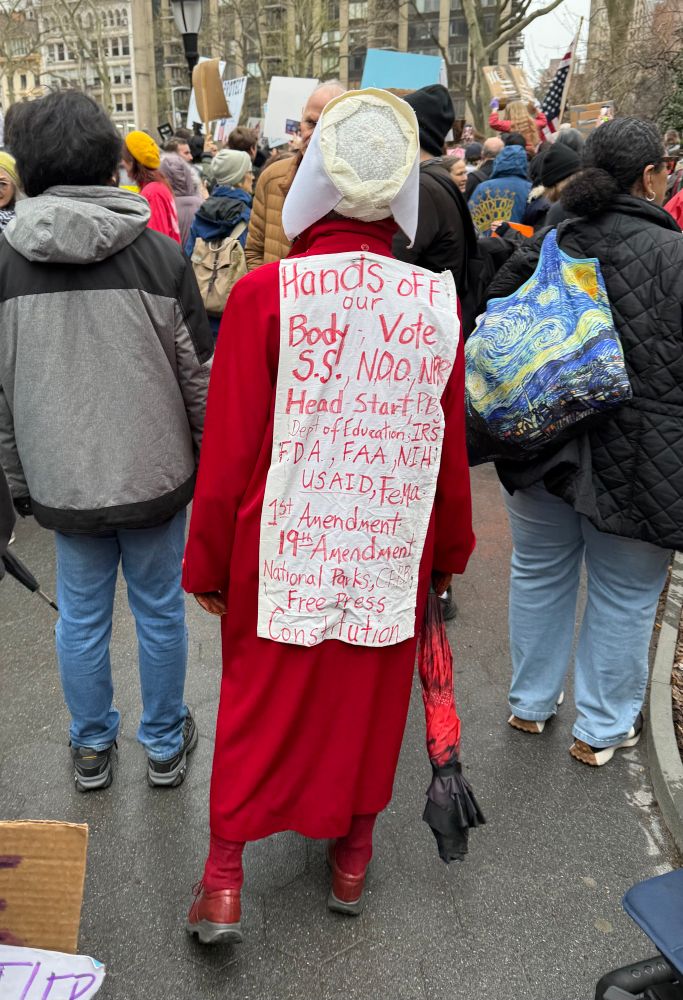 Hands off
our
Body, Vote
S.S., N.D.O., NPR
Head Start, P.B.
Dept of Education, IRS
F.D.A., FAA, NIH
USAID, FeMa
1st Amendment
19th Amendment
National Parks,
Free Press
Constitution